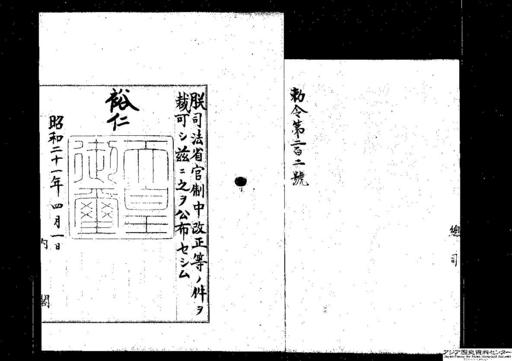 勅令第二百二號
總司
朕司法省官制中改正等ノ件ヲ
裁可シ茲ニ之ヲ公布セシム
裕仁
天皇
御璽
昭和二十一年四月一日
内閣
アジア歴史資料センター